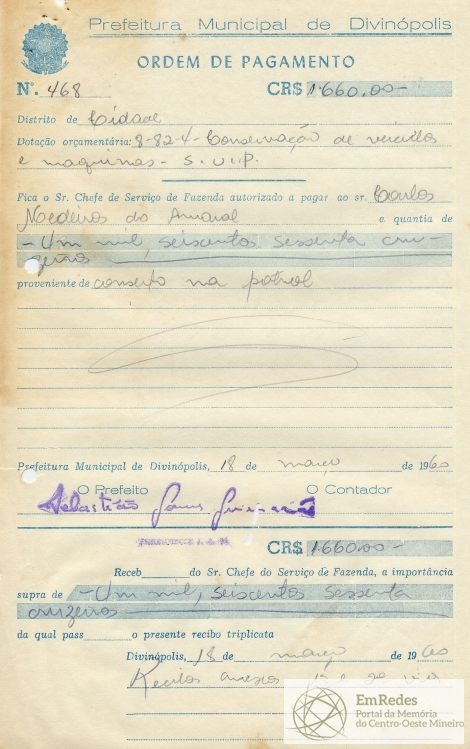 Prefeitura Municipal de Divinópolis
ORDEM DE PAGAMENTO
N°. 468 CR$ 1.660,00-
Distrito de Cidade
Dotação orçamentária: 8-82-4- Conservação de veículos
e maquinas - S.
Fica o Sr. Chefe de Serviço de Fazenda autorizado a pagar ao sr. Carlos
Medeiros do Amaral e quantia de
-Um mil, seiscentos sessenta cru-
zeiros
proveniente de conserto na patrol
Prefeitura Municipal de Divinópolis, 18 de março de 1960
O Prefeito O Contador
Sebastião Gomes Guimarães
CR$ 1.660,00-
Receb____ do Sr. Chefe do Serviço de Fazenda, a importância
supra de -Um mil, seiscentos sessenta
cruzeiros
da qual pass____ o presente recibo triplicata
Divinópolis, 18 de março de 1960
Recibos anexos
EmRedes
Portal da Memória
do Centro-Oeste Mineiro